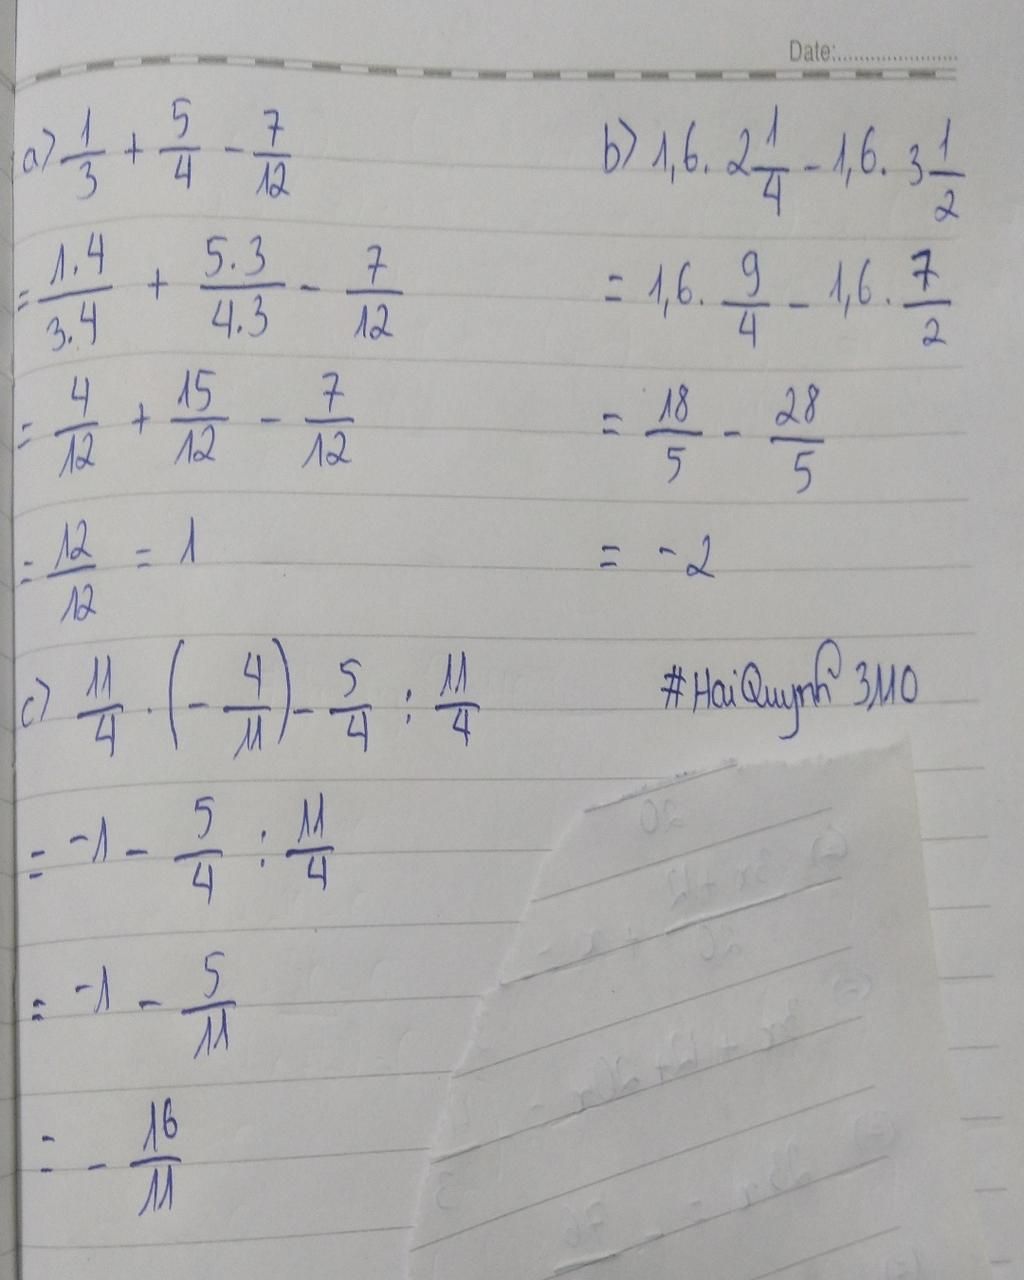 Date:........................
a) 1/3 + 5/4 - 7/12
= 1.4/3.4 + 5.3/4.3 - 7/12
= 4/12 + 15/12 - 7/12
= 12/12 = 1
b) 1,6. 2 1/4 - 1,6. 3 1/2
= 1,6. 9/4 - 1,6. 7/2
= 18/5 - 28/5
= -2
c) 11/4 . (- 4/11) - 5/4 : 11/4
= -1 - 5/4 : 11/4
= -1 - 5/11
= - 16/11
#HaiQuynh 3110